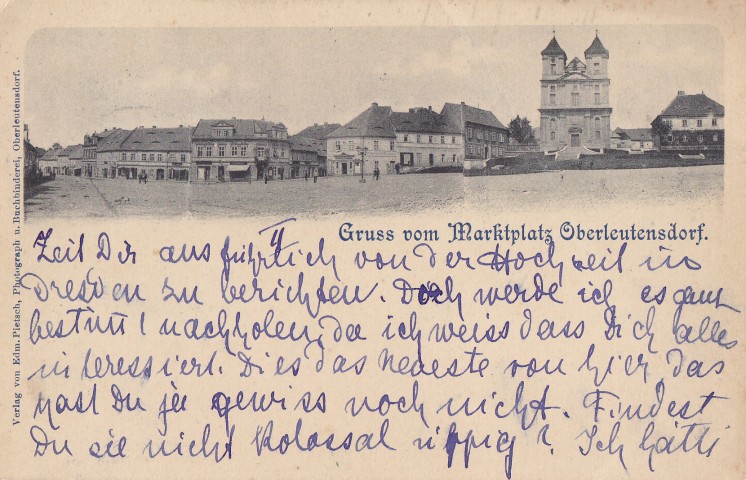 Verlag von Edm. Pietsch, Photograph u. Buchbinderei, Oberleutensdorf.
Gruss vom Marktplatz Oberleutensdorf.
Zeit Dir ausführlich von der Hochzeit in
Dresden zu berichten. Doch werde ich es ganz
bestimt nachholen, da ich weiss dass Dich alles
interessiert. Dies das neueste von hier, das
hast Du ja gewiss noch nicht. Findest
Du sie nicht kolossal üppig? Ich hätte